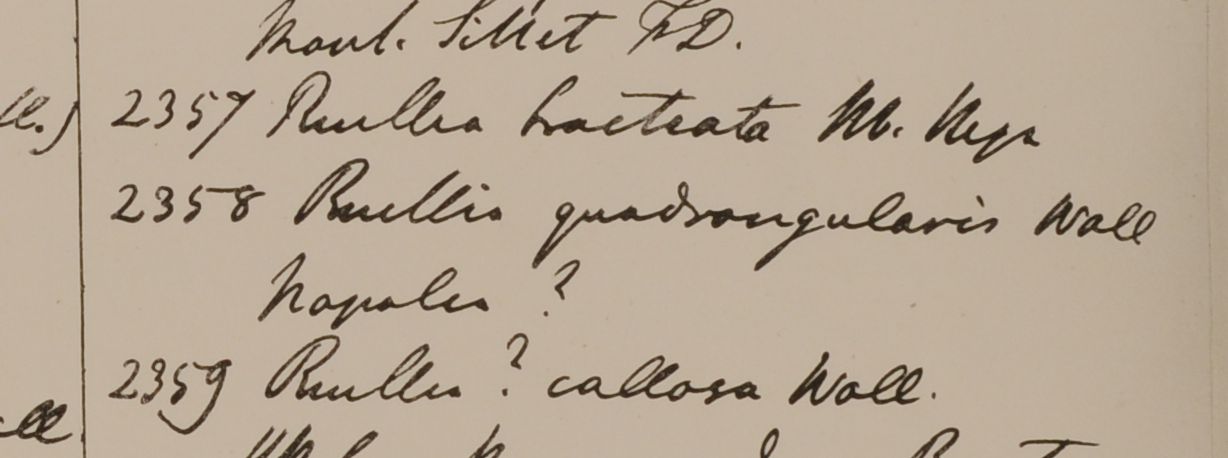 Mont. Sillet F.D.
2357 Ruellia bracteata Hb.
2358 Ruellia quadrangularis Wall
Napalia ?
2359 Ruellia ? callosa Wall.